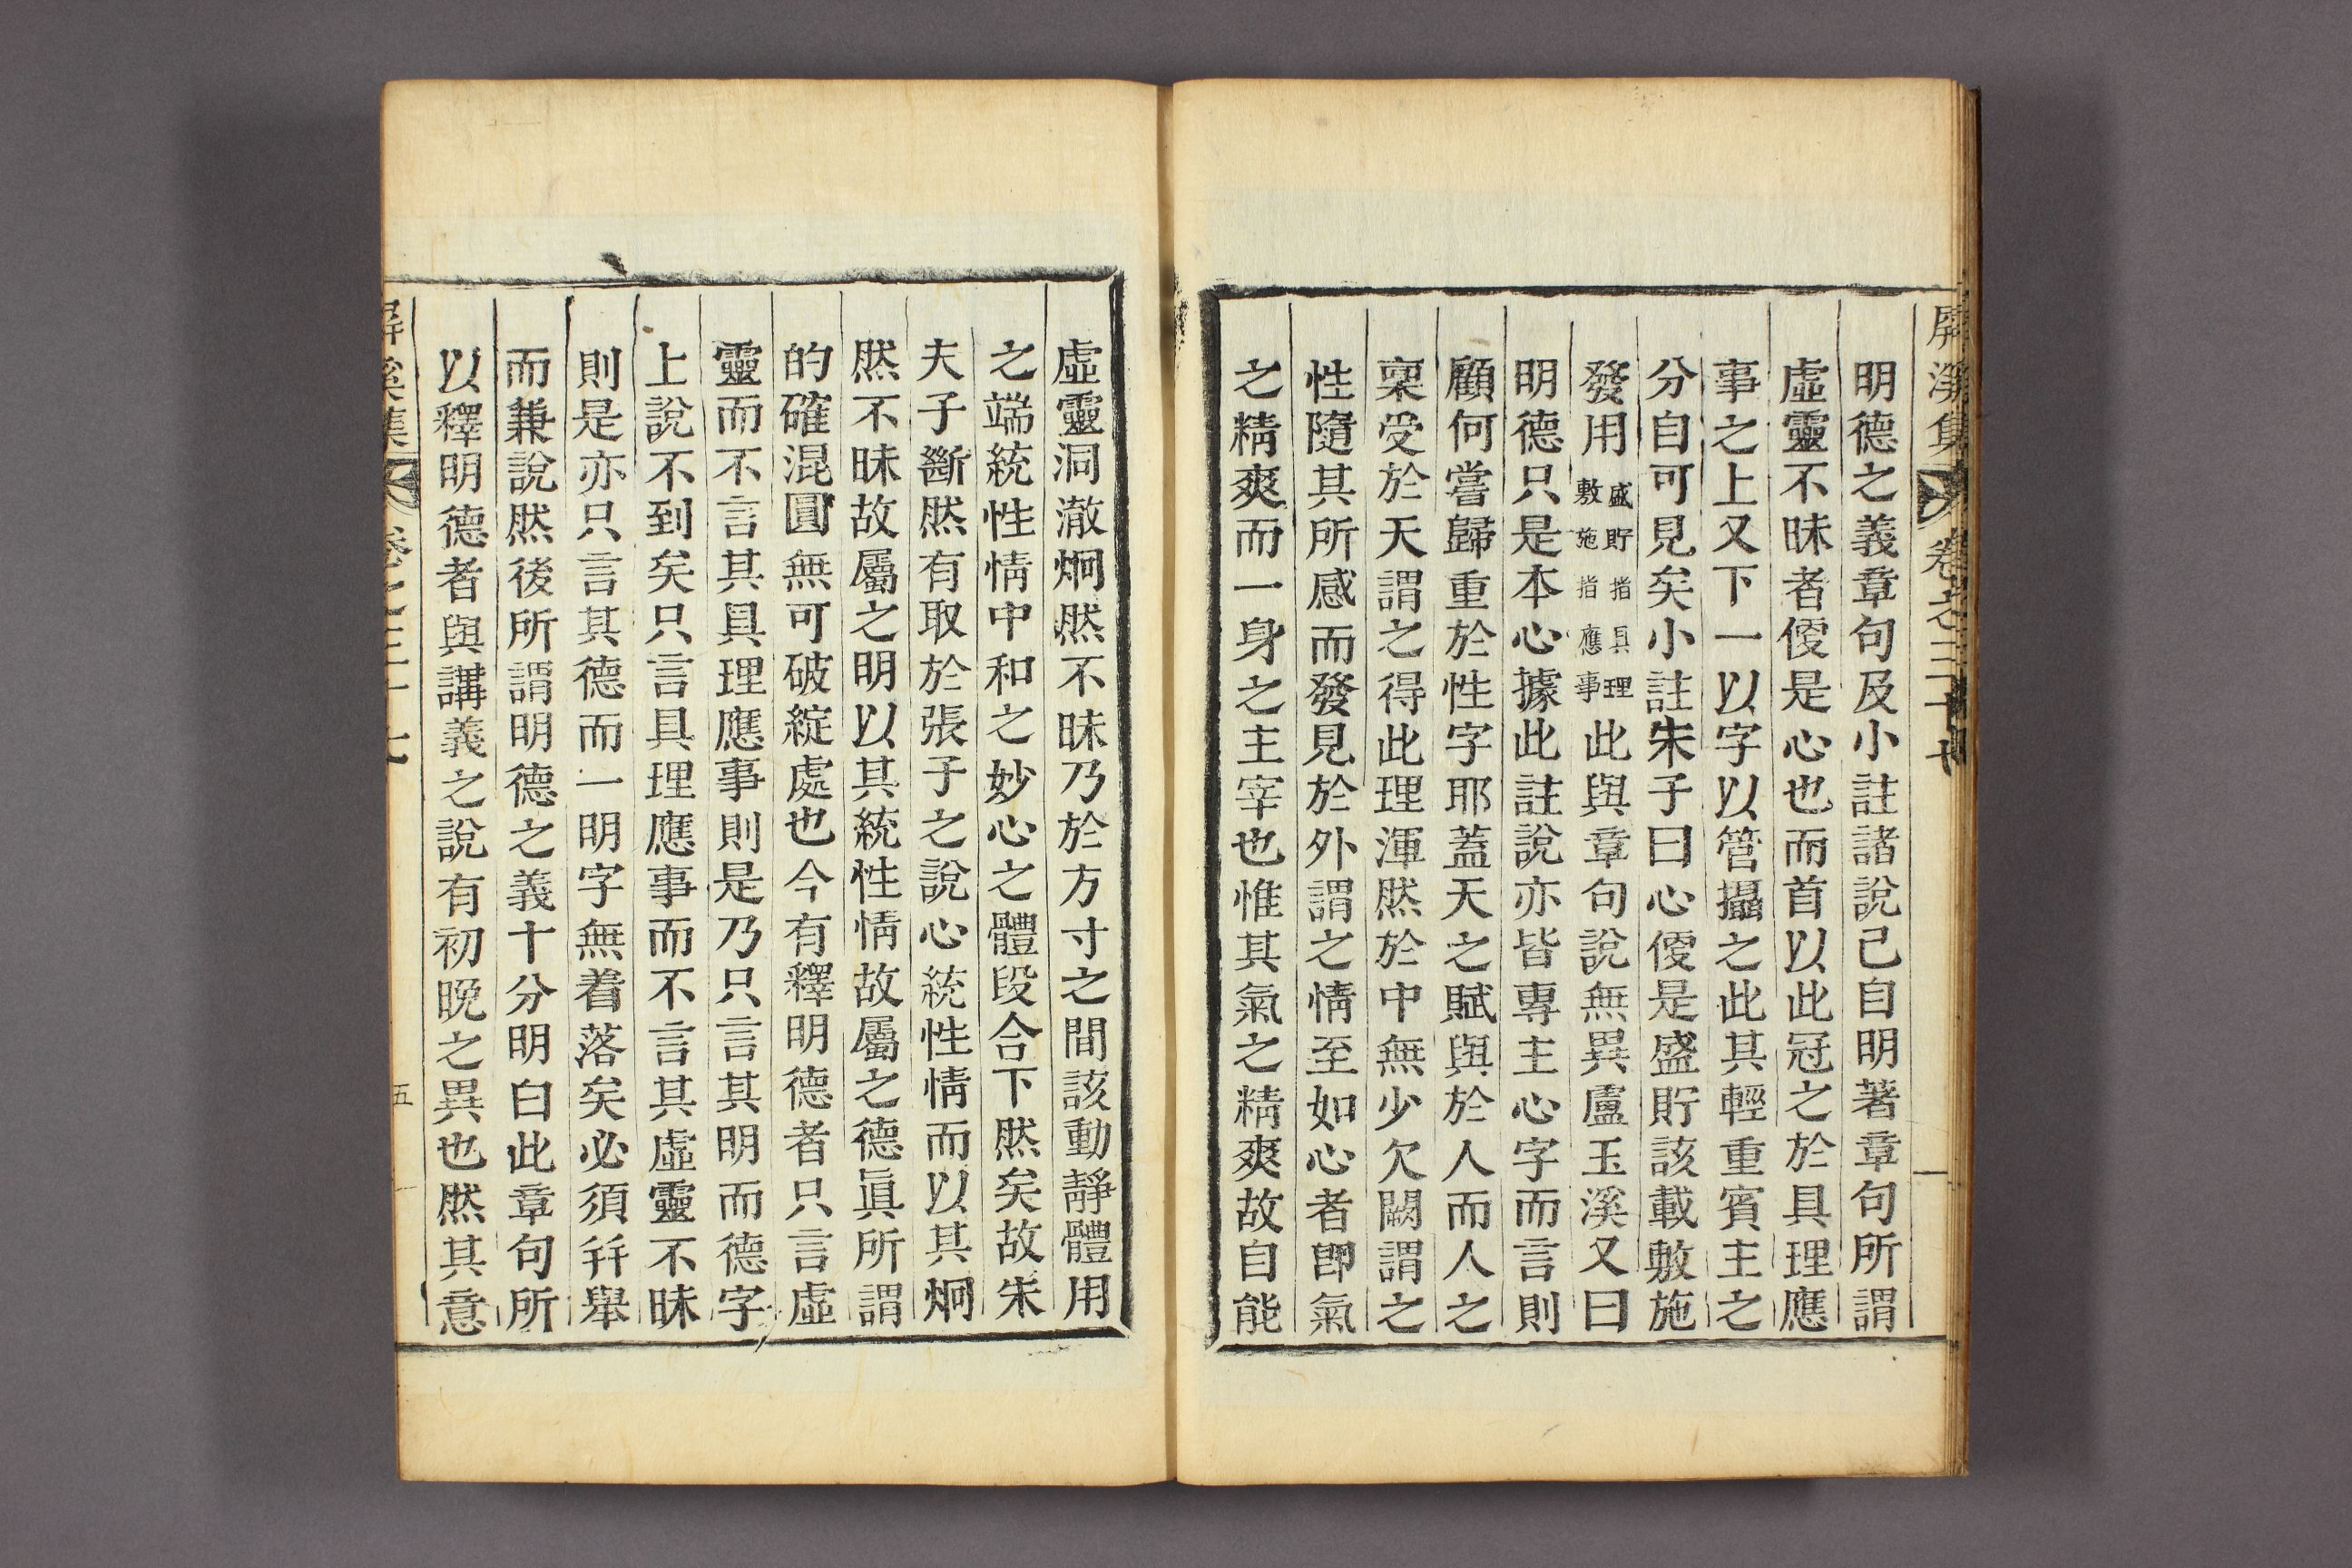 屛溪集 卷之三十七
明德之義章句及小註諸說已自明著章句所謂
虛靈不昧者便是心也而首以此冠之於具理應
事之上又下一以字以管攝之此其輕重賓主之
分自可見矣小註朱子曰心便是盛貯該載敷施
發用盛貯指具理敷施指應事此與章句說無異盧玉溪又曰
明德只是本心據此註說亦皆專主心字而言則
顧何嘗歸重於性字耶蓋天之賦與於人而人之
稟受於天謂之得此理渾然於中無少欠闕謂之
性隨其所感而發見於外謂之情至如心者卽氣
之精爽而一身之主宰也惟其氣之精爽故自能
虛靈洞澈炯然不昧乃於方寸之間該動靜體用
之端統性情中和之妙心之體段合下然矣故朱
夫子斷然有取於張子之說心統性情而以其炯
然不昧故屬之明以其統性情故屬之德眞所謂
的確混圓無可破綻處也今有釋明德者只言虛
靈而不言其具理應事則是乃只言其明而德字
上說不到矣只言具理應事而不言其虛靈不昧
則是亦只言其德而一明字無着落矣必須幷擧
而兼說然後所謂明德之義十分明白此章句所
以釋明德者與講義之說有初晚之異也然其意
屛溪集 卷之三十七 五